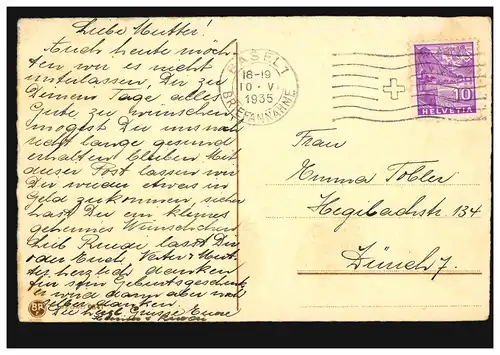 Liebe Mutter!
Auch heute möch-
ten wir es nicht
unterlassen, Dir zu
Deinem Tage alles
Gute zu wünschen
mögest Du uns noch
recht lange gesund
erhalten bleiben. Mit
dieser Post lassen wir
Dir wieder etwas in
Geld zukommen, sicher
hast Du ein kleines
geheimes Wünschchen
Lieb Ruedi lasst Dir
oder Euch, Vater & Mutt
er herzlich danken
für sein Geburtsgeschenk
er wird dann aber noch
selber danken.
Die herzl. Grüsse Eure
BASEL 1
18-19
10. V.
1935
BRIEFANNAHME
10
HELVETIA
Frau
Emma Tobler
Hegibachstr. 134
Zürich 7.
BR